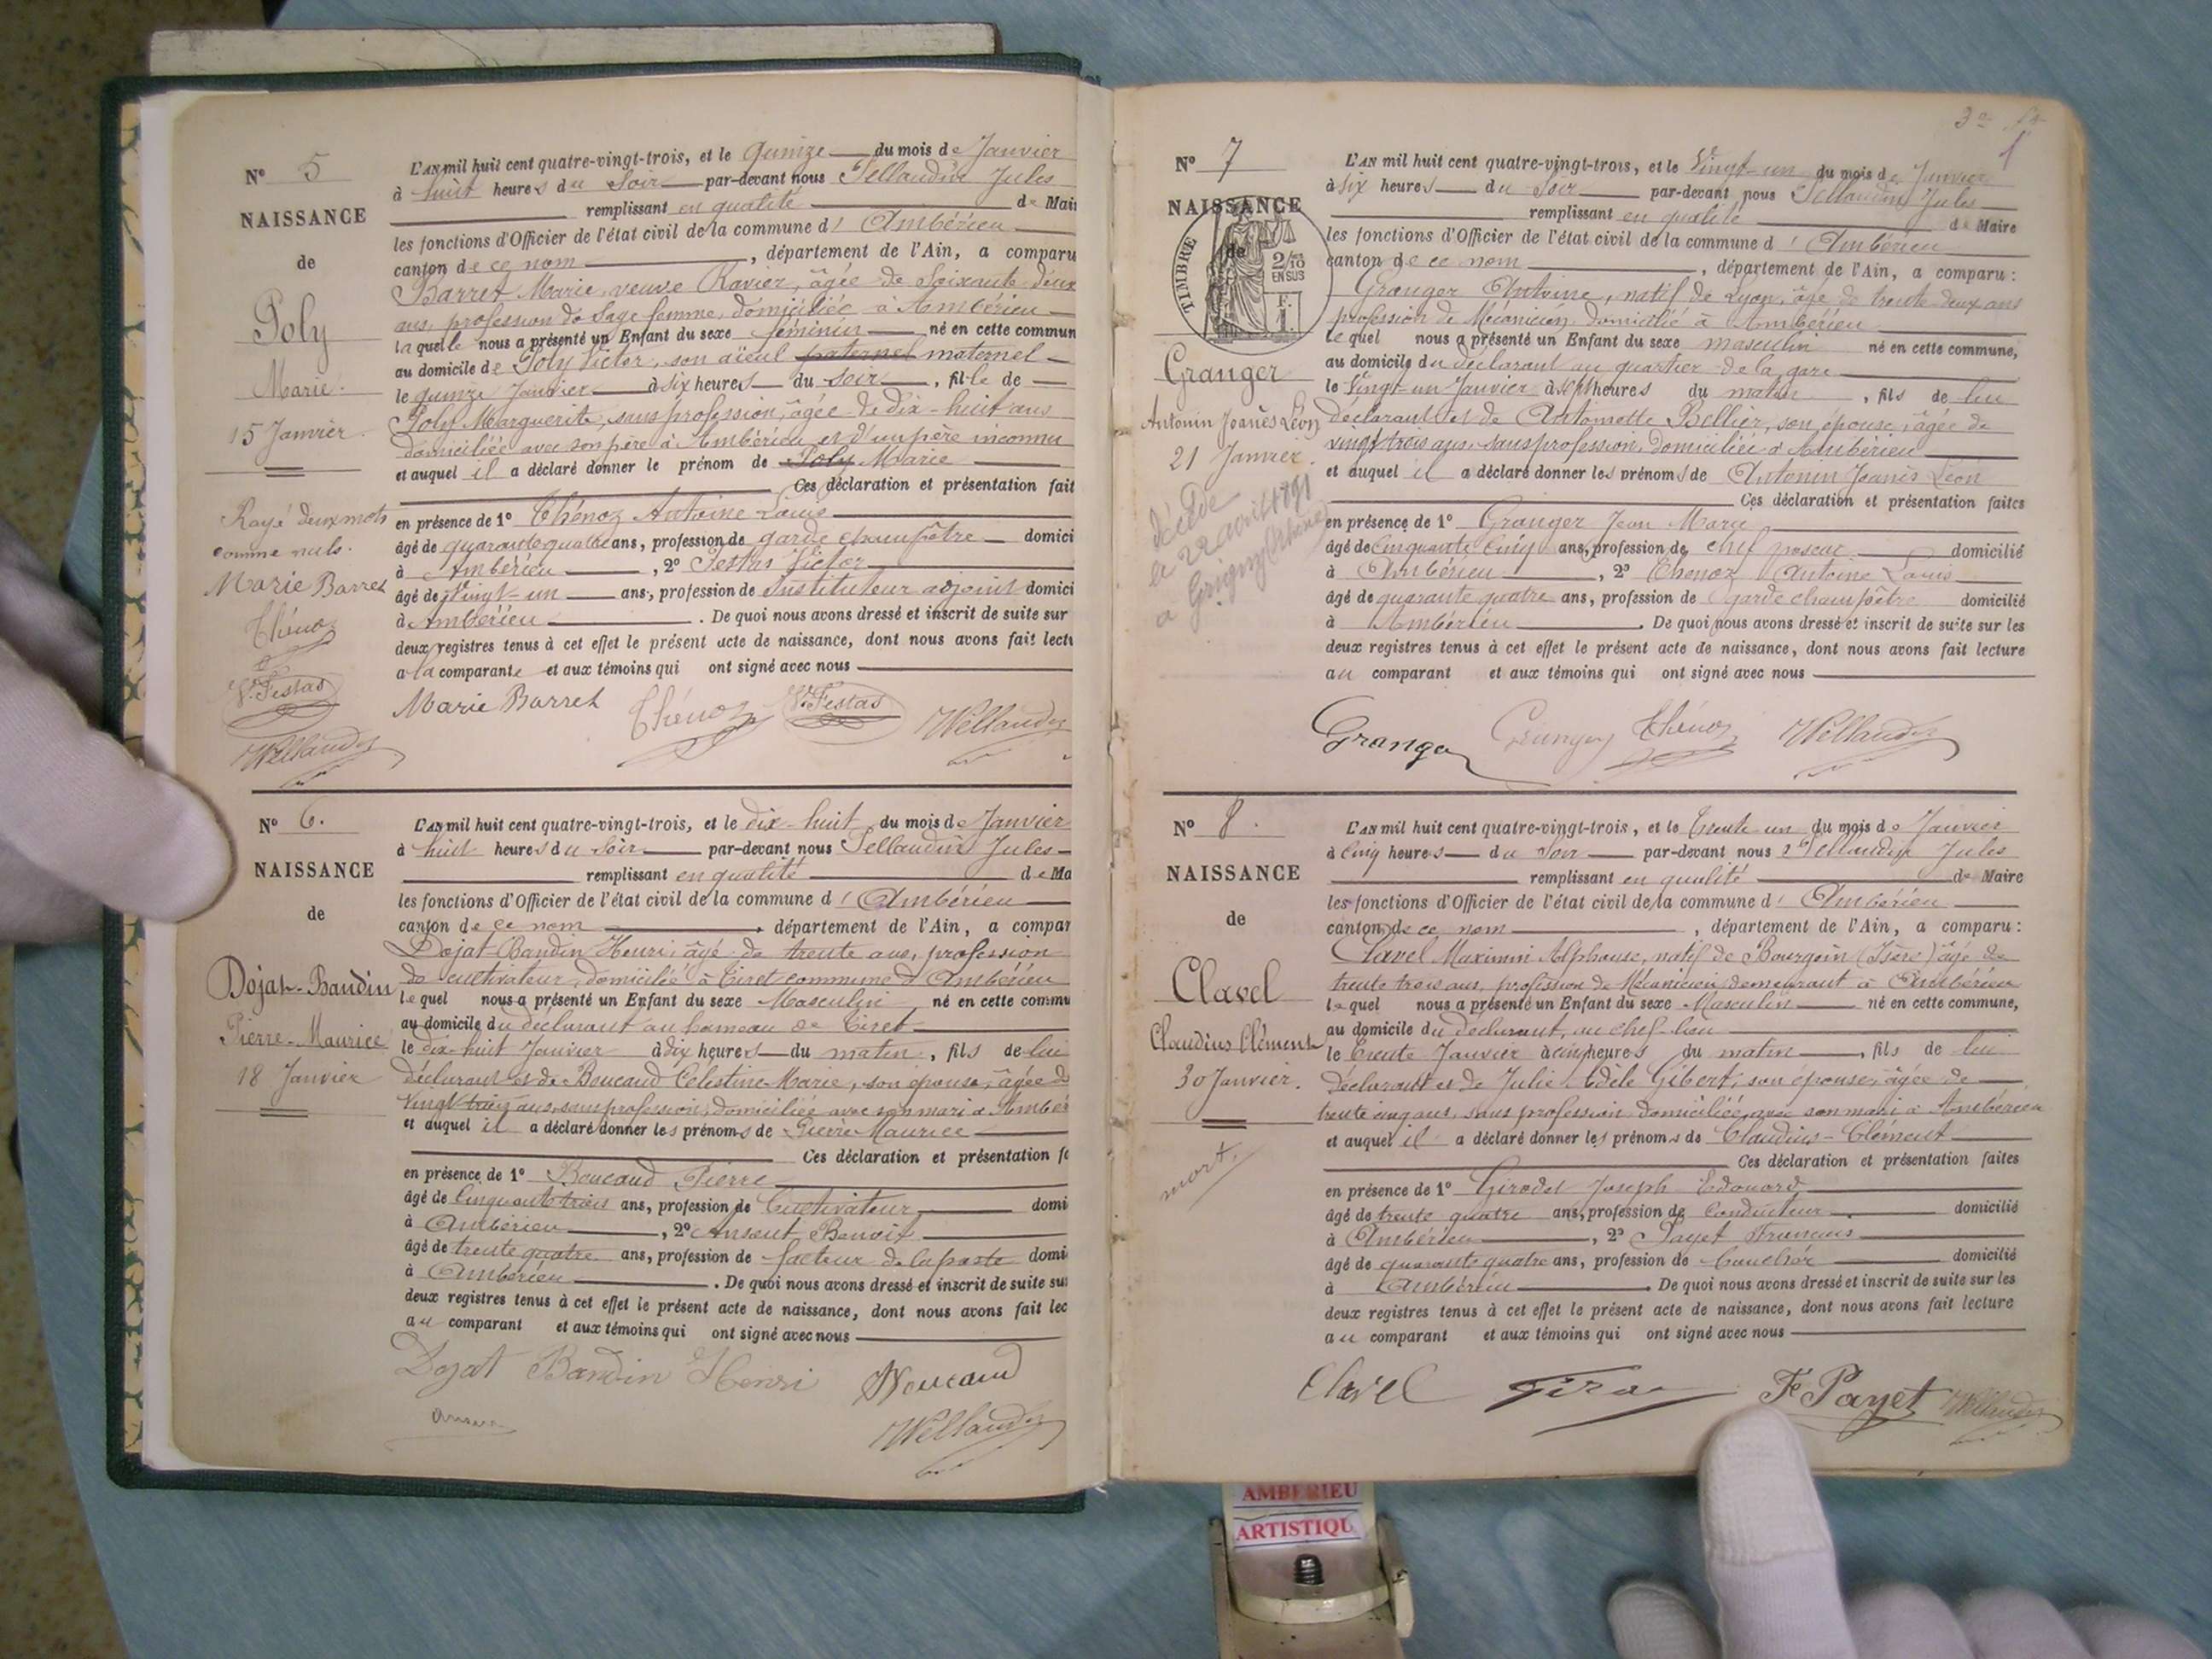 N° 5
NAISSANCE
de
Poly
Marie.
15 Janvier.
Rayé deux mots
comme nuls.
Marie Barret
Thénoz
V. Testas
L'AN mil huit cent quatre-vingt-trois, et le quinze du mois de Janvier
à huit heures du soir par-devant nous Tellaudin Jules
remplissant en qualité de Mai
les fonctions d'Officier de l'état civil de la commune d' Ambérieu
canton de ce nom , département de l'Ain, a comparu
Barret Marie, veuve Ravier, âgée de soixante-deux
ans, profession de Sage femme, domiciliée à Ambérieu
laquelle nous a présenté un Enfant du sexe féminin né en cette commun
au domicile de Poly Victor, son aïeul paternel maternel
le quinze Janvier à six heures du soir , fille de
Poly Marguerite, sans profession, âgée de dix-huit ans
domiciliée avec son père à Ambérieu et d'un père inconnu
et auquel il a déclaré donner le prénom de Poly Marie
Ces déclaration et présentation fait
en présence de 1° Thénoz Antoine Louis
âgé de quarante quatre ans, profession de garde champêtre domici
à Ambérieu , 2° Testas Victor
âgé de Vingt-un ans, profession de Instituteur adjoint domici
à Ambérieu . De quoi nous avons dressé et inscrit de suite sur
deux registres tenus à cet effet le présent acte de naissance, dont nous avons fait lectu
a la comparante et aux témoins qui ont signé avec nous
Marie Barret Thénoz V. Testas
N° 6.
NAISSANCE
de
Dojat-Baudin
Pierre-Maurice
18 Janvier
L'AN mil huit cent quatre-vingt-trois, et le dix-huit du mois de Janvier
à huit heures du soir par-devant nous Tellaudin Jules
remplissant en qualité de Ma
les fonctions d'Officier de l'état civil de la commune d' Ambérieu
canton de ce nom , département de l'Ain, a compar
Dojat-Baudin Henri, âgé de trente ans, profession
de cultivateur, domicilié à Tiret commune d'Ambérieu
lequel nous a présenté un Enfant du sexe Masculin né en cette commu
au domicile du déclarant au hameau de Tiret
le dix-huit Janvier à dix heures du matin , fils de lui
déclarant et de Boucaud Célestine-Marie, son épouse, âgée de
vingt-trois ans, sans profession, domiciliée avec son mari à Ambér
et auquel il a déclaré donner les prénoms de Pierre Maurice
Ces déclaration et présentation fa
en présence de 1° Boucaud Pierre
âgé de Cinquante trois ans, profession de Cultivateur domi
à Ambérieu , 2° Ansent Benoit
âgé de trente quatre ans, profession de facteur de la poste domi
à Ambérieu . De quoi nous avons dressé et inscrit de suite sur
deux registres tenus à cet effet le présent acte de naissance, dont nous avons fait lec
au comparant et aux témoins qui ont signé avec nous
Dojat Baudin Henri Boucaud
3e
N° 7
NAISSANCE
de
TIMBRE
2/10 EN SUS
F. 1
Granger
Antonin Joanès Léon
21 Janvier.
décédé
le 22 avril 1891
à Grigny (Rhône)
L'AN mil huit cent quatre-vingt-trois, et le Vingt-un du mois de Janvier
à six heures du soir par-devant nous Tellaudin Jules
remplissant en qualité de Maire
les fonctions d'Officier de l'état civil de la commune d' Ambérieu
canton de ce nom , département de l'Ain, a comparu :
Granger Antoine, natif de Lyon, âgé de trente-deux ans
profession de Mécanicien domicilié à Ambérieu
lequel nous a présenté un Enfant du sexe masculin né en cette commune,
au domicile du déclarant au quartier de la gare
le Vingt-un Janvier à sept heures du matin , fils de lui
déclarant et de Antoinette Bellier, son épouse, âgée de
vingt trois ans, sans profession, domiciliée à Ambérieu
et auquel il a déclaré donner les prénoms de Antonin Joanès Léon
Ces déclaration et présentation faites
en présence de 1° Granger Jean Marie
âgé de Cinquante Cinq ans, profession de chef poseur domicilié
à Ambérieu , 2° Thenoz Antoine Louis
âgé de quarante quatre ans, profession de garde champêtre domicilié
à Ambérieu . De quoi nous avons dressé et inscrit de suite sur les
deux registres tenus à cet effet le présent acte de naissance, dont nous avons fait lecture
au comparant et aux témoins qui ont signé avec nous
Granger Granger Thénoz
N° 8.
NAISSANCE
de
Clavel
Claudius Clément
30 Janvier.
mort.
L'AN mil huit cent quatre-vingt-trois, et le Trente un du mois de Janvier
à Cinq heures du soir par-devant nous Tellaudin Jules
remplissant en qualité de Maire
les fonctions d'Officier de l'état civil de la commune d' Ambérieu
canton de ce nom , département de l'Ain, a comparu :
Clavel Maximin Alphonse, natif de Bourgoin (Isère) âgé de
trente trois ans, profession de Mécanicien demeurant à Ambérieu
lequel nous a présenté un Enfant du sexe Masculin né en cette commune,
au domicile du déclarant, au chef-lieu
le Trente Janvier à cinq heures du matin , fils de lui
déclarant et de Julie Adèle Gibert, son épouse, âgée de
trente cinq ans, sans profession domiciliée avec son mari à Ambérieu
et auquel il a déclaré donner les prénoms de Claudius-Clément
Ces déclaration et présentation faites
en présence de 1° Girodet Joseph Edouard
âgé de trente quatre ans, profession de Conducteur domicilié
à Ambérieu , 2° Payet François
âgé de quarante quatre ans, profession de boucher domicilié
à Ambérieu . De quoi nous avons dressé et inscrit de suite sur les
deux registres tenus à cet effet le présent acte de naissance, dont nous avons fait lecture
au comparant et aux témoins qui ont signé avec nous
Clavel F. Payet
AMBERIEU
ARTISTIQU